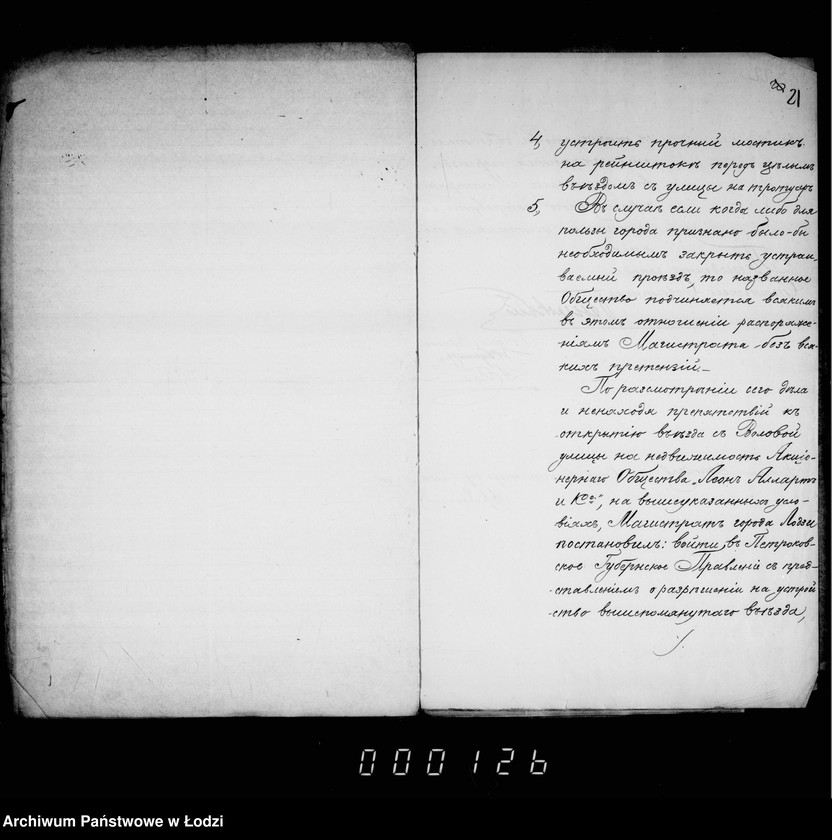 21
4, устроить прочный мостикъ
на рейнштокъ передъ цѣлымъ
въѣздомъ съ улицы на тротуаръ
5, Въ случаѣ если когда либо для
пользы города признано было-бы
необходимымъ закрыть устраи-
ваемый проѣздъ, то названное
Общество подчиняется всякимъ
въ этомъ отношеніи распоряже-
ніямъ Магистрата безъ вся-
кихъ претензій.—
По разсмотрѣніи сего дѣла
и ненаходя препятствій къ
открытію въѣзда съ Воловой
улицы на недвижимость Акціо-
нернаго Общества „Леонъ Аллартъ
и Ко“, на вышеуказанныхъ усло-
віяхъ, Магистратъ города Лодзи
постановилъ: войти въ Петроков-
ское Губернское Правленіе съ пред-
ставленіемъ о разрѣшеніи на устрой-
ство вышепомянутаго въѣзда,
./.
000126
Archiwum Państwowe w Łodzi